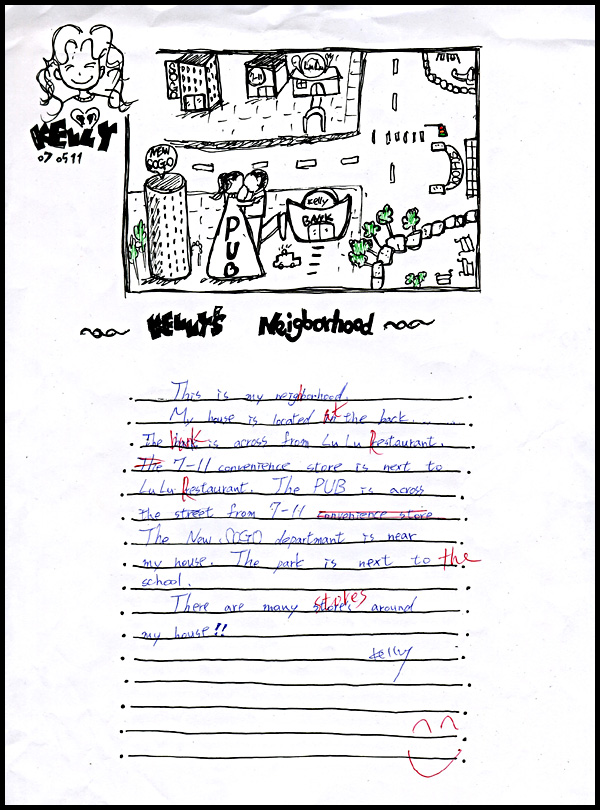 KELLY
07 0511
SOGO
7-11
LuLu
NEW
SOGO
PUB
Kelly
BANK
KELLY'S Neigborhood
This is my neighborhood.
My house is located at the back....
The bank is across from LuLu Restaurant.
The 7-11 convenience store is next to
LuLu Restaurant. The PUB is across
the street from 7-11 convenience store
The New SOGO department is near
my house. The park is next to the
school.
There are many stores around
my house!!
Kelly